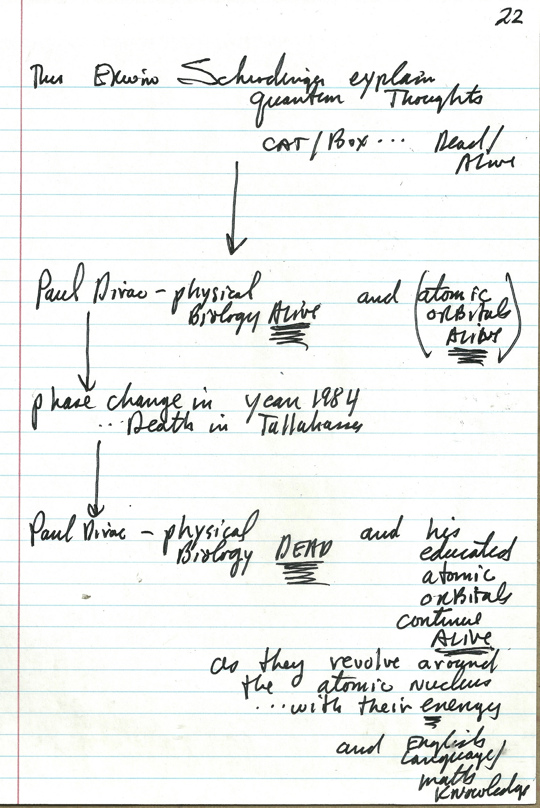 22
This Erwin Schrodinger explain
quantum Thoughts
CAT/BOX... Dead/
Alive
Paul Dirac - physical and (atomic
Biology Alive orbitals
Alive)
phase change in year 1984
... Death in Tallahassee
Paul Dirac - physical and his
Biology DEAD educated
atomic
orbitals
continue
ALIVE
as they revolve around
the atomic nucleus
...with their energy
and English
Language/
math
knowledge